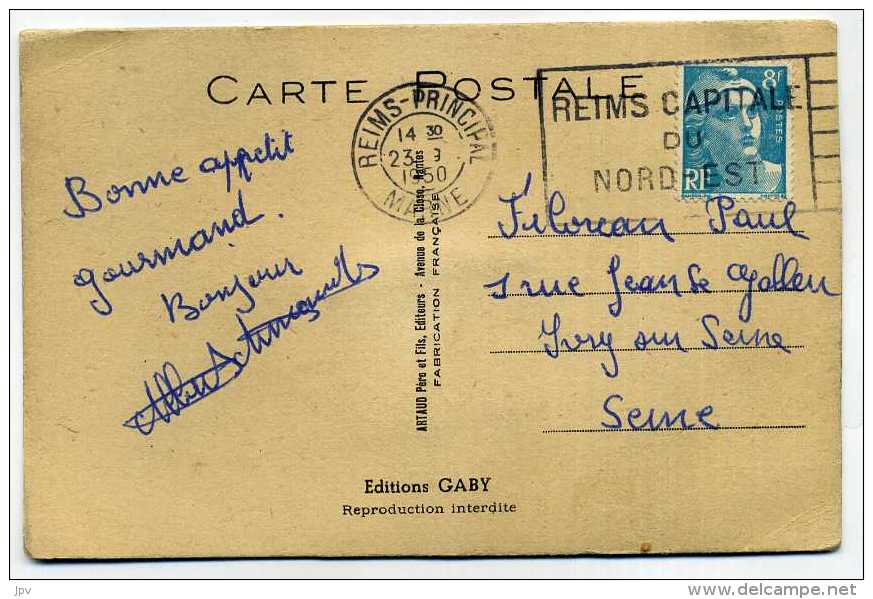 CARTE POSTALE
REIMS-PRINCIPAL
14 30
23 9
1950
MARNE
REIMS CAPITALE
DU
NORD EST
8f
POSTES
RF
Bonne appetit
gourmand.
Bonjour
ARTAUD Père et Fils, Editeurs - Avenue de la Close, Nantes
FABRICATION FRANÇAISE
Paul
1 rue Jean
Ivry sur Seine
Seine
Editions GABY
Reproduction interdite
jpv
delcampe.net